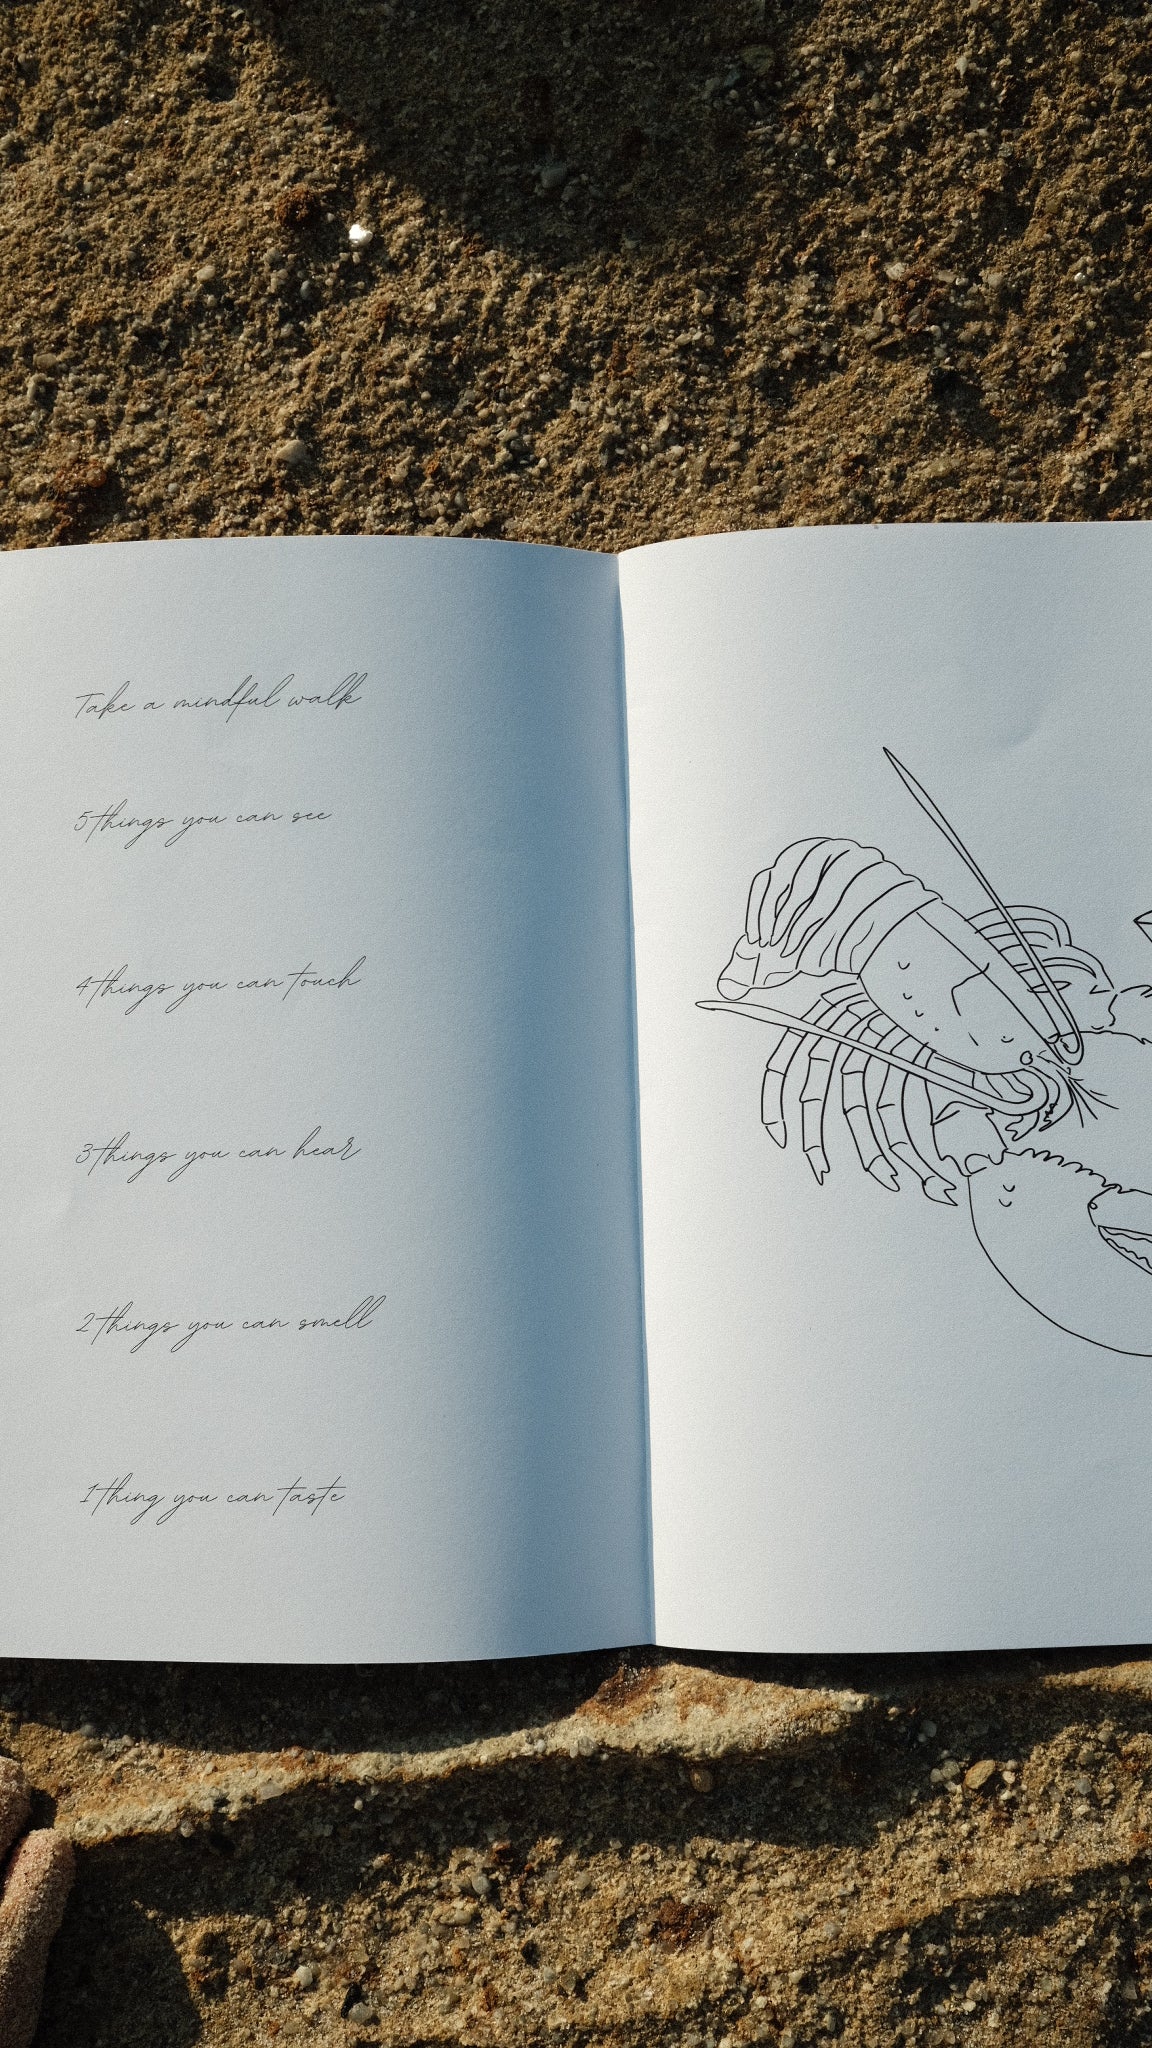 Take a mindful walk
5 things you can see
4 things you can touch
3 things you can hear
2 things you can smell
1 thing you can taste